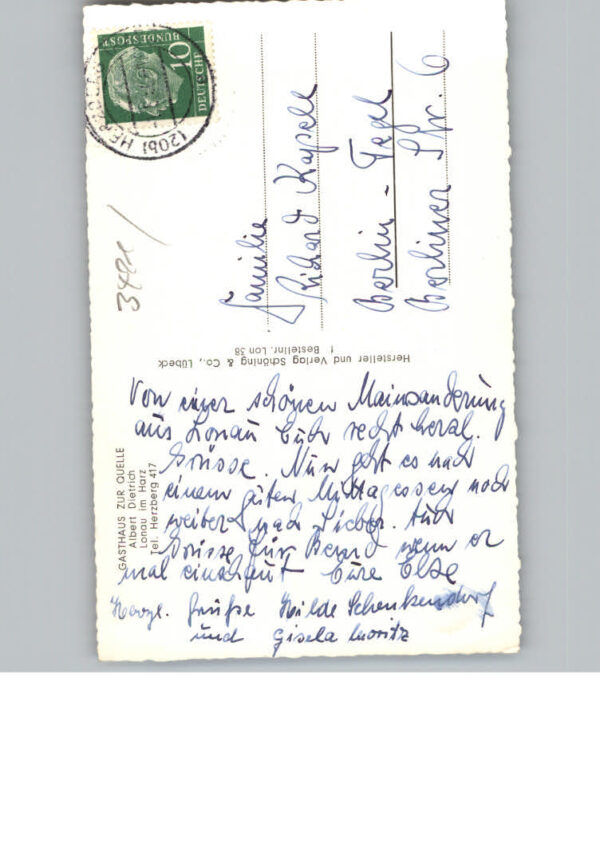 GASTHAUS ZUR QUELLE
Albert Dietrich
Lonau im Harz
Tel. Herzberg 417
Von einer schönen Maiwanderung
aus Lonau Euch recht herzl.
Grüsse. Nun geht es nach
einem guten Mittagessen noch
weiter nach. Auch
Grüsse für wenn er
mal einschaut Eure Else
Herzl. Grüße Hilde Schenkendorf
und Gisela Moritz
Hersteller und Verlag Schöning & Co., Lübeck
Bestellnr. Lon 38
Familie
Richard
Berlin - Tegel
Berliner Str. 6
DEUTSCHE
BUNDESPOST
10
(20b) HERZ